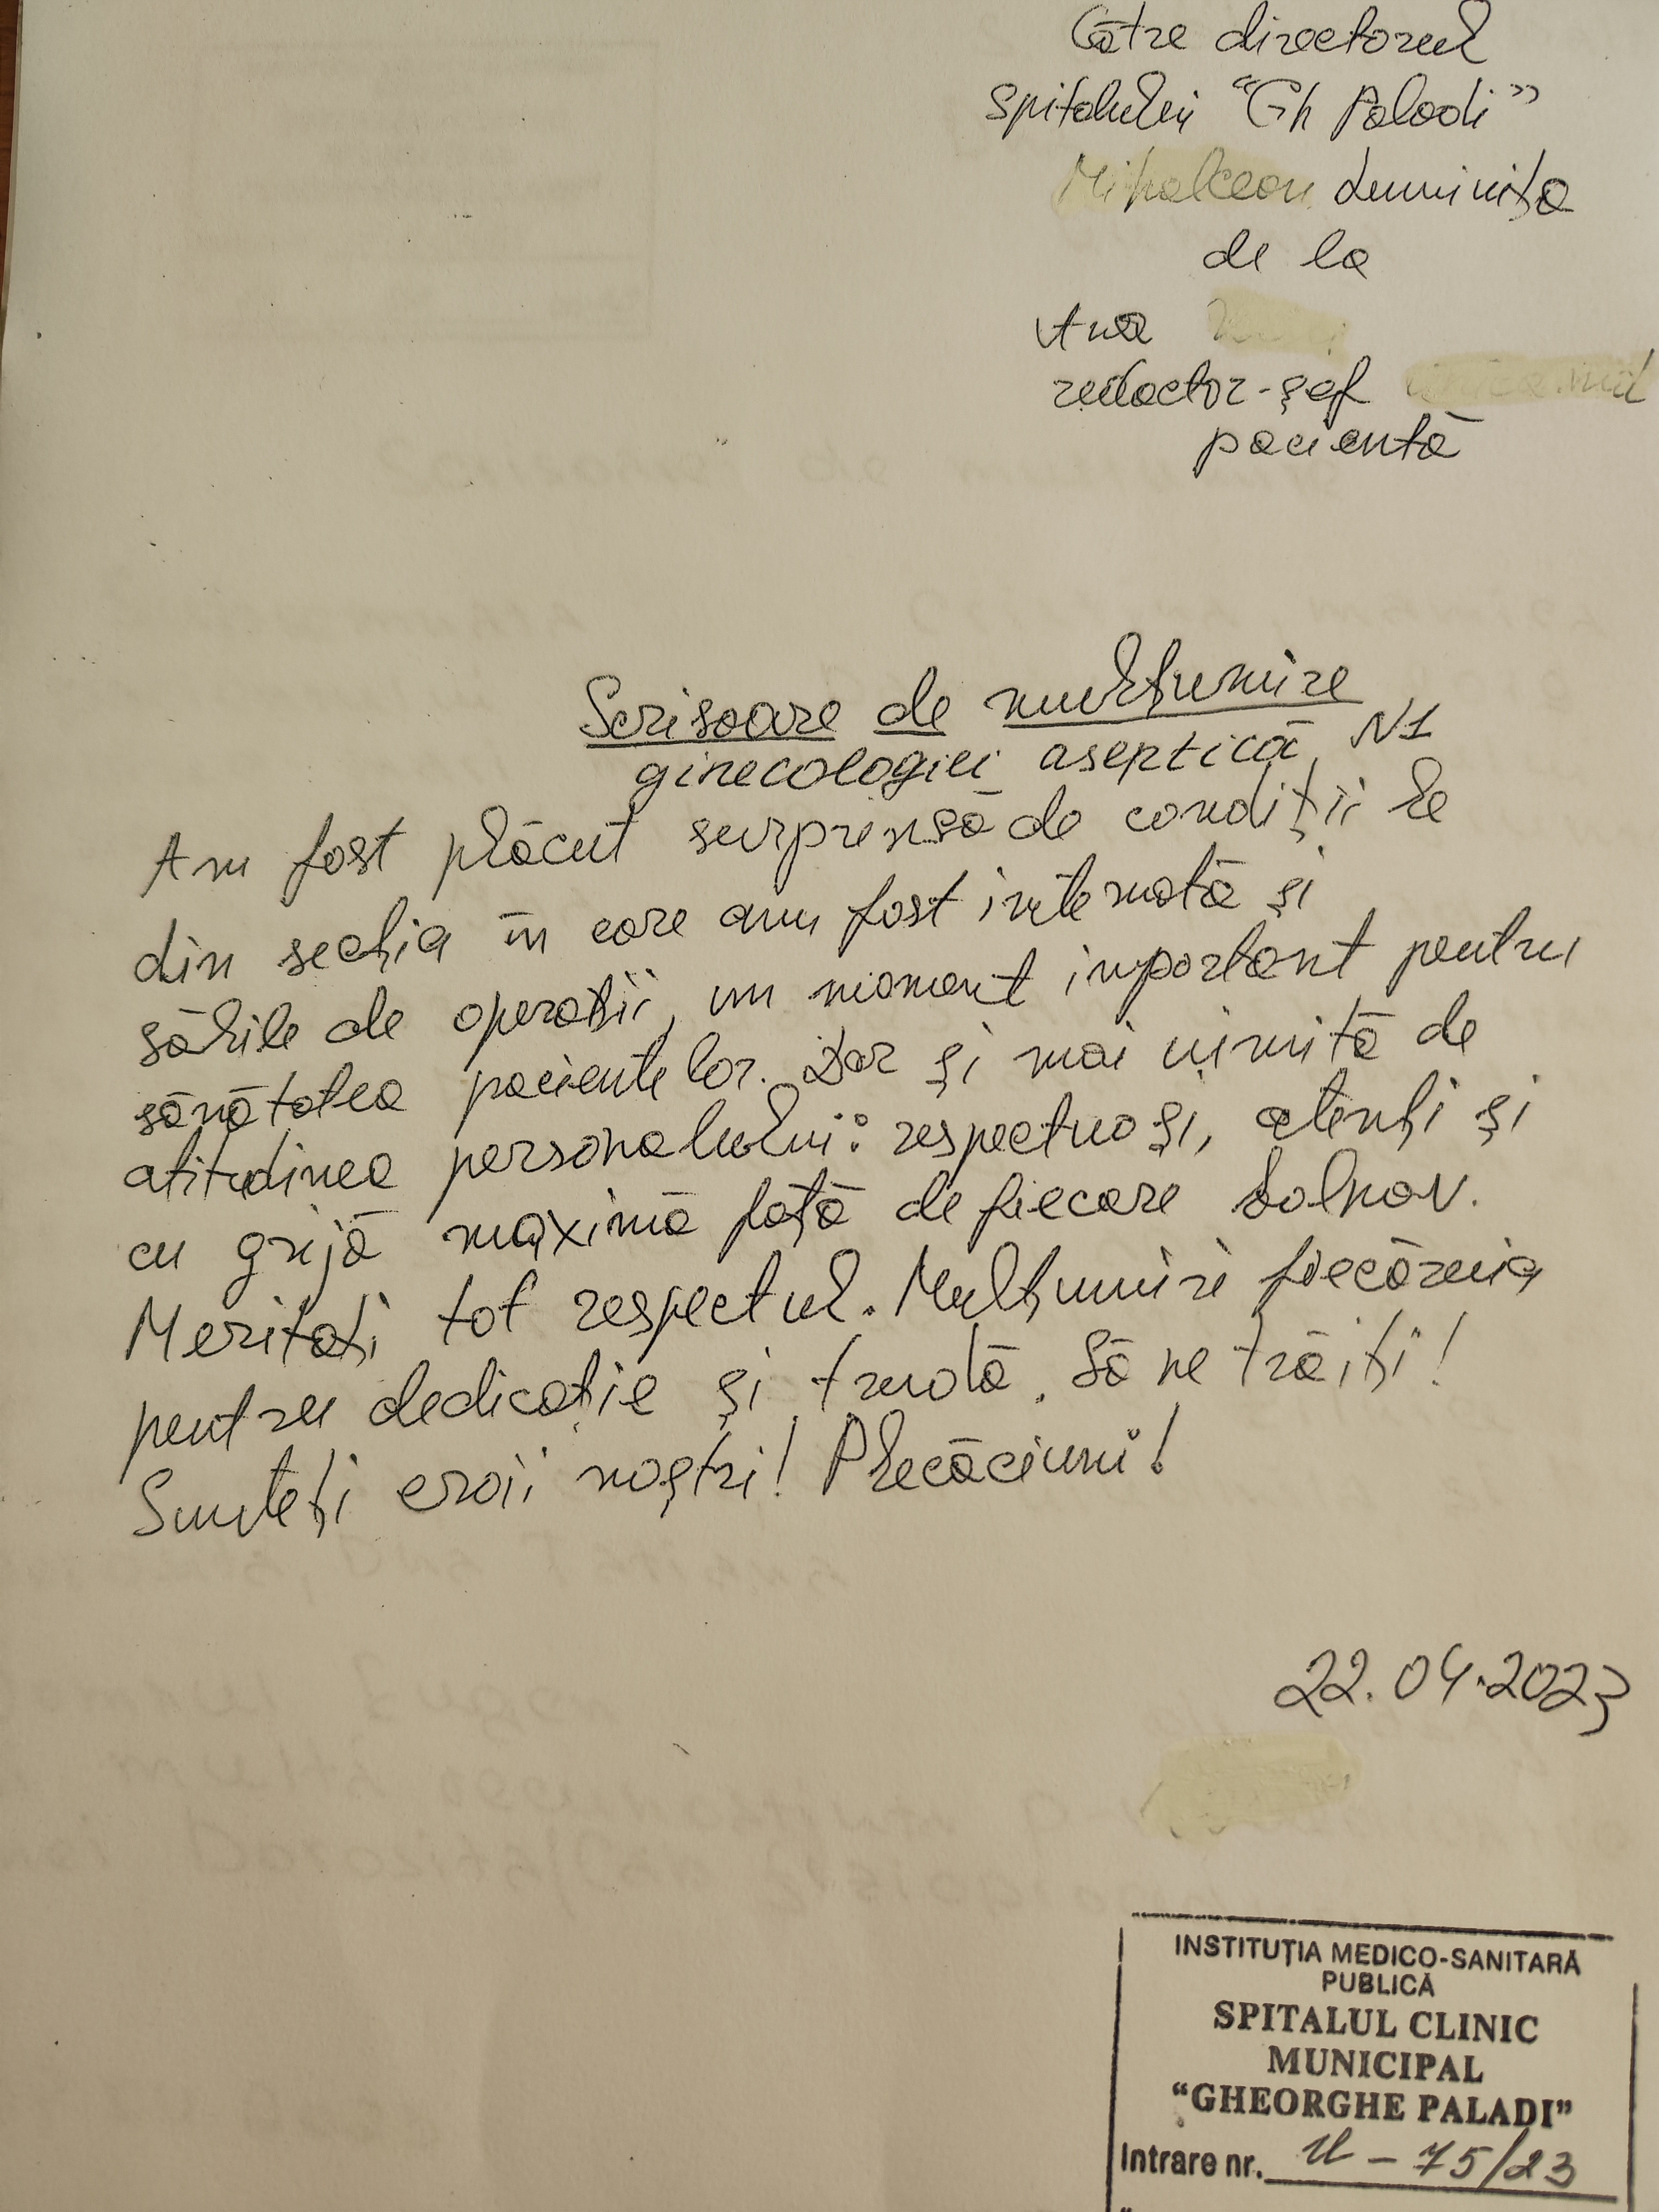 Către directorul
spitalului "Gh Paladi"
Luminița
de la
Ana
redactor-șef
pacientă
Scrisoare de mulțumire
ginecologiei aseptică, N1
Am fost plăcut surprinsă de condițiile
din secția în care am fost internată și
sălile de operații, un moment important pentru
sănătatea pacientelor. Dar și mai uimită de
atitudinea personalului: respectuoși, atenți și
cu grijă maximă față de fiecare bolnav.
Meritați tot respectul. Mulțumiri fiecăruia
pentru dedicație și trudă. Să ne trăiți!
Sunteți eroii noștri! Plecăciuni!
22.04.2023
INSTITUȚIA MEDICO-SANITARĂ
PUBLICĂ
SPITALUL CLINIC
MUNICIPAL
"GHEORGHE PALADI"
Intrare nr. - 75/23